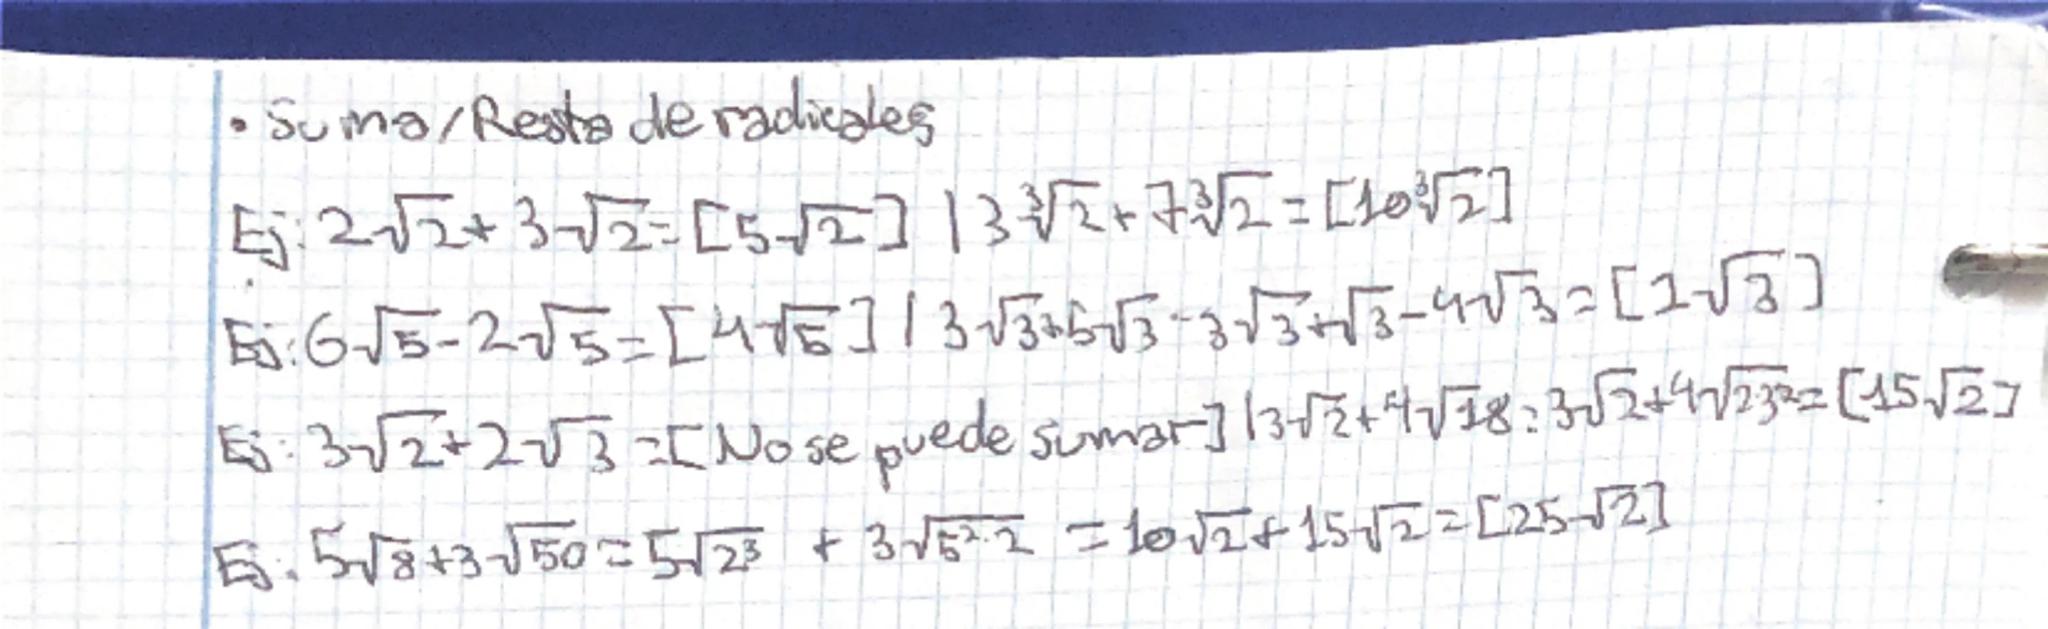 • Suma/Resta de radicales
Ej: 2√2 + 3√2 = [5√2] | 3∛2 + 7∛2 = [10∛2]
Ej: 6√5 - 2√5 = [4√5] | 3√3 + 5√3 - 3√3 + √3 - 4√3 = [1√3]
Ej: 3√2 + 2√3 = [No se puede sumar] | 3√2 + 4√18 = 3√2 + 4√23² = [15√2]
Ej: 5√8 + 3√50 = 5√2³ + 3√5²·2 = 10√2 + 15√2 = [25√2]